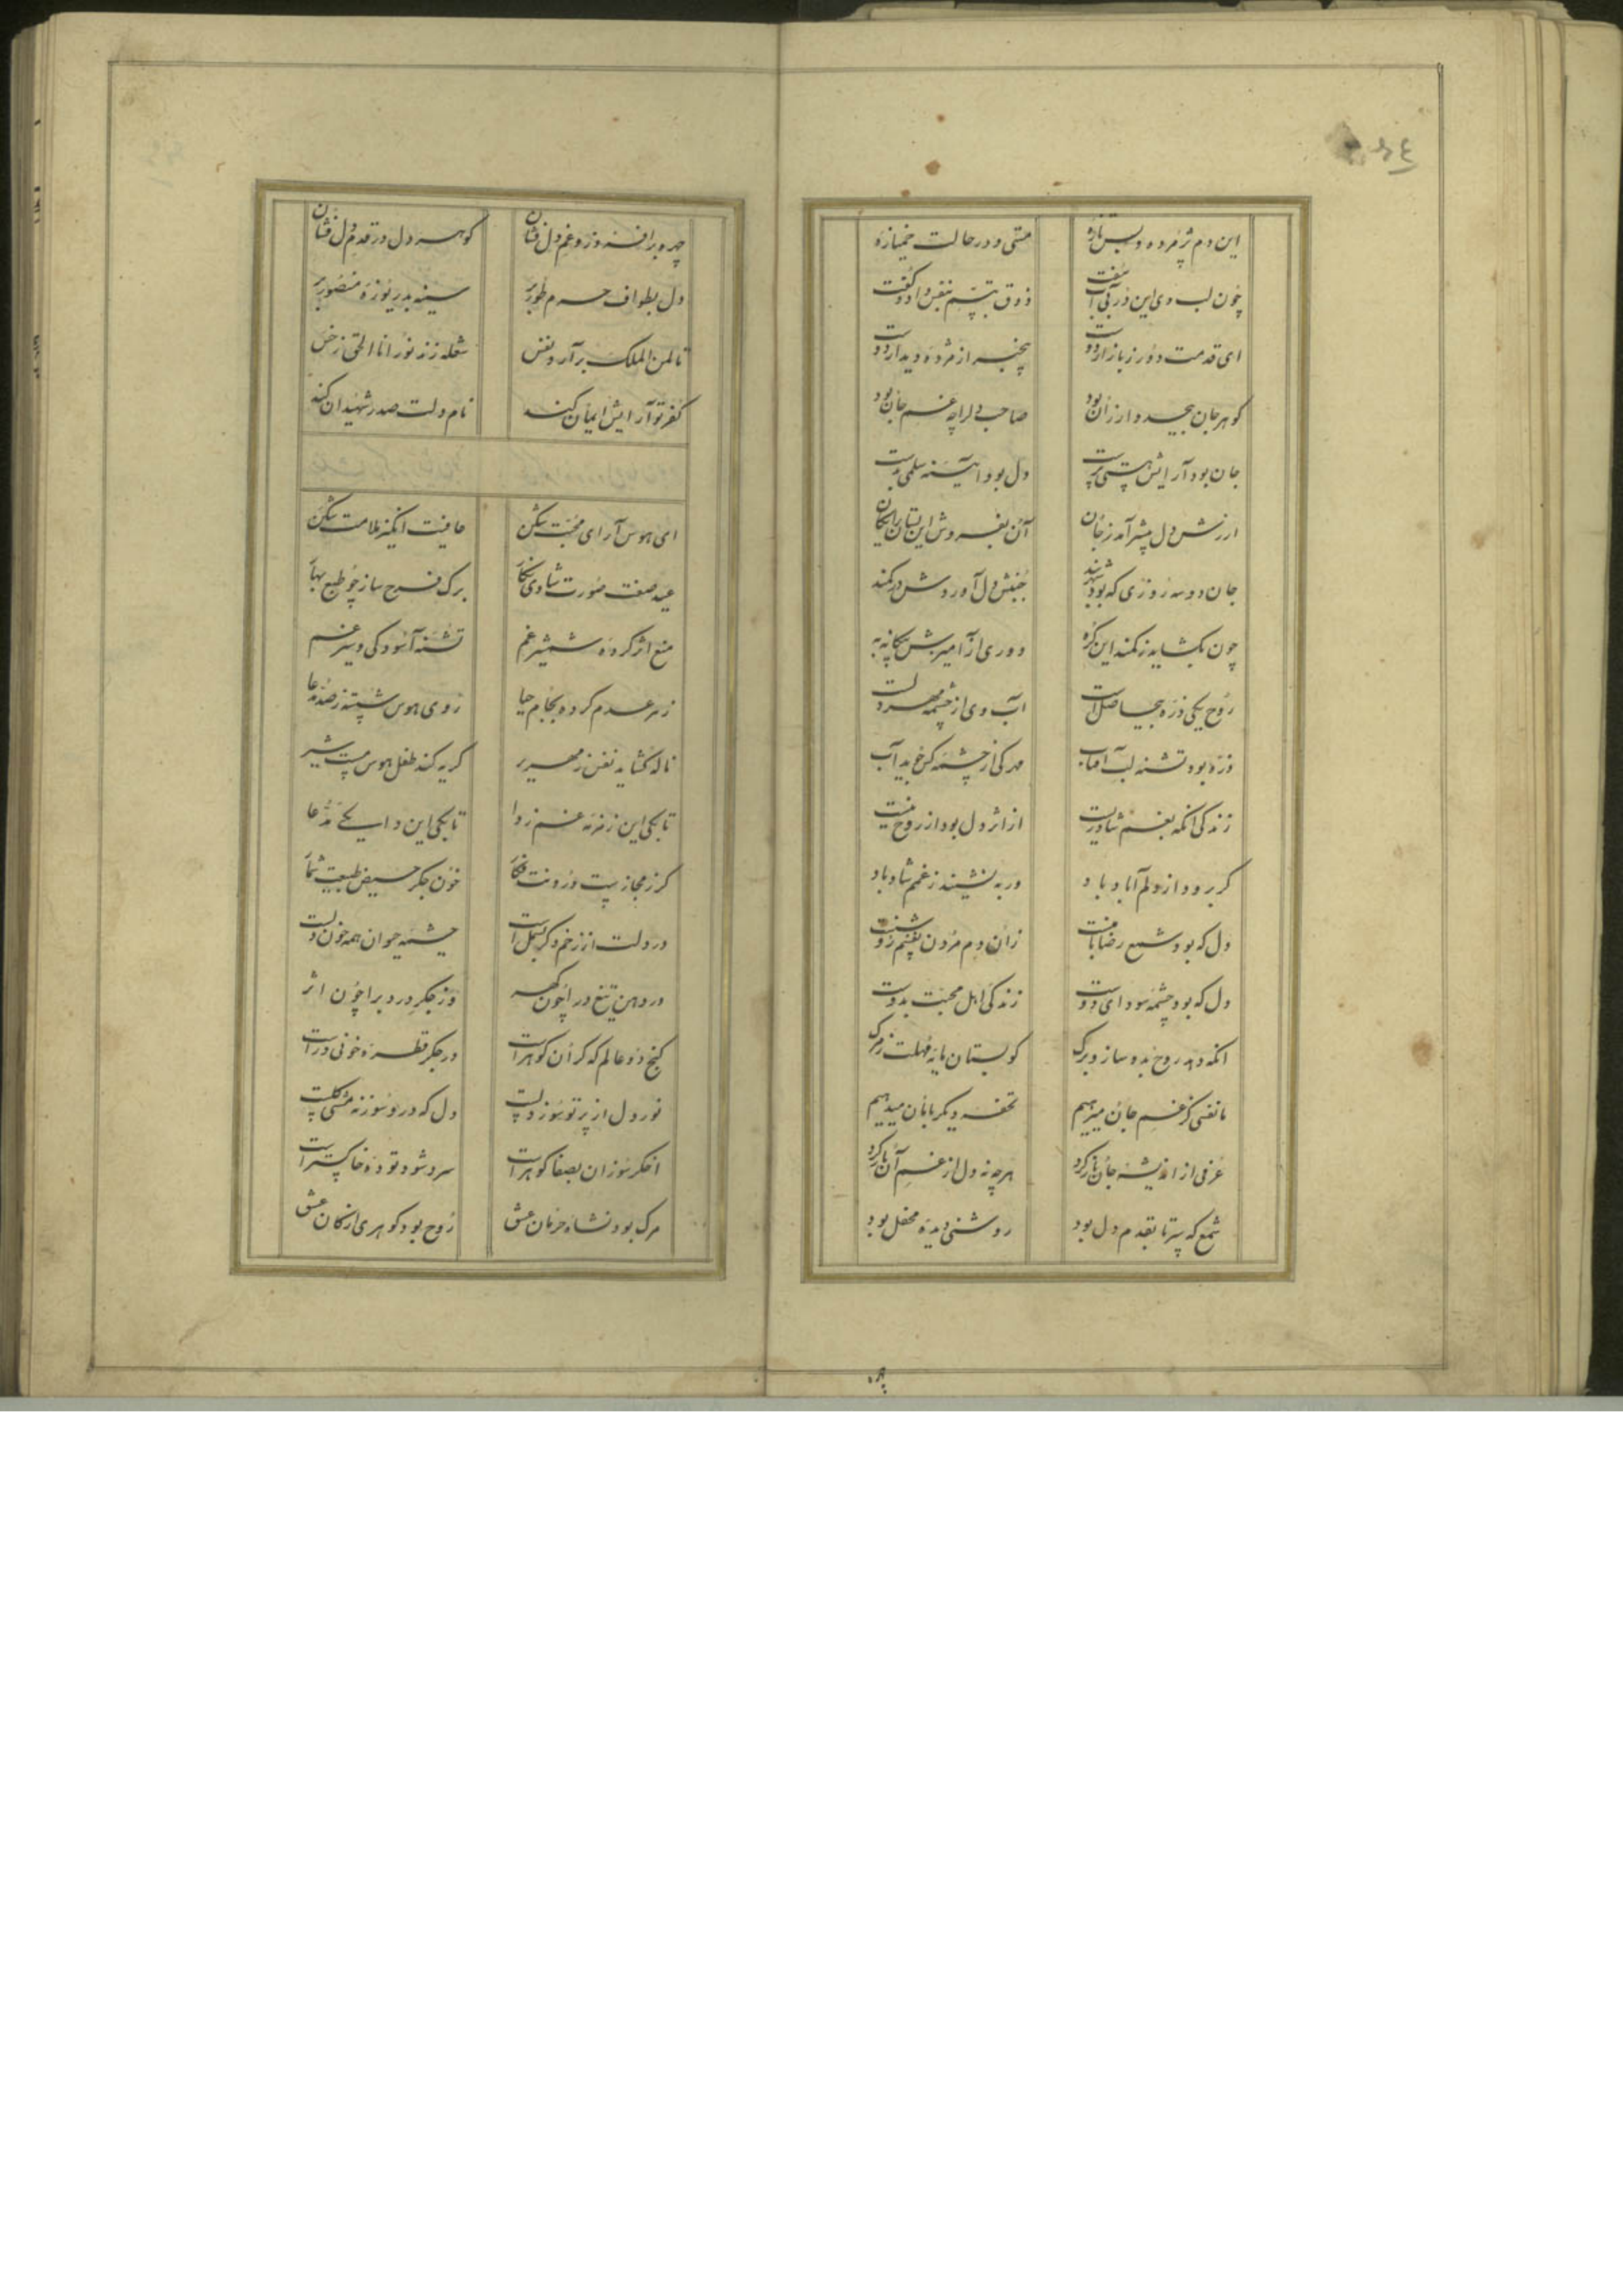 این دم پژمرده و بس تازه
مستی و در حالت خمیازه
چون لب وی این در بی آب سفت
ذوق تبسم بنفس داد و گفت
ای قدمت دور ز بازار دوست
بیخبر از مژده دیدار دوست
کوهر جان بیحد و ارزان بود
صاحب دلرا چه غم جان بود
جان بود آرایش هستی پرست
دل بود آیینه سلمی پرست
ارزش دل بیشتر آمد ز جان
آن بفروش این بستان رایکان
جان دو سه روزی که بود شهربند
جنبش دل آوردش در کمند
چون بکشاید ز کمند این کره
دوری از آمیزش بیکانه به
روح یکی ذره بیحاصل است
آب وی از چشمه مهر دلست
ذره بود تشنه لب آفتاب
مهر کی از چشمه کرم دید آب
زندکی آنکه بغم شاد زیست
از اثر دل بود از روح نیست
کر برود از دلم آباد باد
ور بنشیند ز غمم شاد باد
دل که بود شمع رضا یافت
زان دم مردن نفسم
دل که بود چشمه سودای دوست
زندکی اهل محبت بدوست
آنکه دهد روح بدو ساز و برک
کو بستان مایه مهلت ز مرک
ما نفسی کز غم جان میرهیم
تحفه دیکر بامان میدهیم
عرفی از اندیشه جان باز کرد
هر چه نه دل از غم آن باز کرد
شمع که سر تا بقدم دل بود
روشنی دیده محفل بود
چهره برافروز و غم دل فشان
کوهر دل در قدم دل فشان
دل بطواف حرم طور بر
سینه بدریوزه منصور بر
تا لمن الملک برآرد نفس
شعله زند نور انا الحق ز خس
کفر تو آرایش ایمان کند
نام دلت صدر شهیدان کند
ای هوس آرای محبت شکن
عافیت انکیز ملامت شکن
عید صفت صورت شادی نکار
برک فرح ساز چو طبع بهار
منع اثر کرده شمشیر غم
تشنه آسودکی و سیر غم
زهر عدم کرده بجام حیا
روی هوس شسته ز
ناله کشاید نفس زمهریر
کریه کند طفل هوس مست شیر
تا بکی این زمزمه غم زدا
تا بکی این داء یکی مدعا
کر ز مجازیست درونت فکار
خون جکر حیض طبیعت شمار
در دلت از زخم دکر بسمل است
چشمه حیوان همه خون دلست
در دهن تیغ در آ چون کهر
وز جکر درد برا چون اثر
کنج دو عالم که کران کوهر است
در جکر قطره خونی در است
نور دل از پرتو سوز دلست
دل که درو سوز نه مشتی کلست
اخکر سوزان بصفا کوهر است
سرد شود توده خاکستر است
مرک بود نشاه حرمان عشق
روح بود کوهری از کان عشق